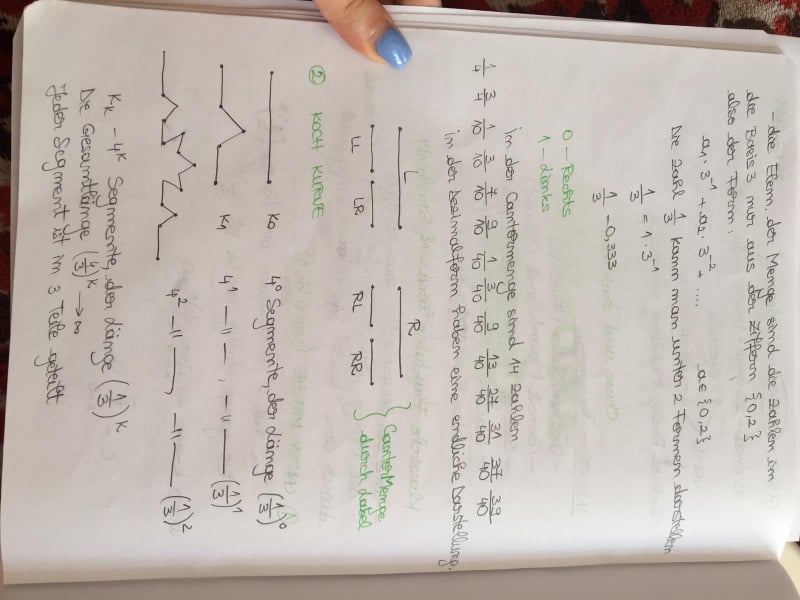 - die Elem. der Menge sind die Zahlen im
die Basis 3 nur aus der Ziffern {0,2}
also der Form:
a₁·3⁻¹ + a₂·3⁻² + .... a∈{0,2}
Die Zahl 1/3 kann man unter 2 Formen darstellen
1/3 = 1·3⁻¹
1/3 - 0,333
0 - Rechts
1 - Links
in der Cantormenge sind 14 Zahlen
1/4 3/4 1/10 3/10 7/10 9/10 1/40 3/40 9/40 13/40 27/40 31/40 37/40 39/40
in der Dezimalform haben eine endliche Darstellung.
L R
LL LR RL RR
Cantor Menge
durch Label
② KOCH KURVE
K₀ 4⁰ Segmente, der Länge (1/3)⁰
K₁ 4¹ -||- , -||- (1/3)¹
4² -||- , -||- (1/3)²
Kₖ - 4ᵏ Segmente, der Länge (1/3)ᵏ
Die Gesamtlänge (4/3)ᵏ → ∞
Jeder Segment ist im 3 Teile geteilt